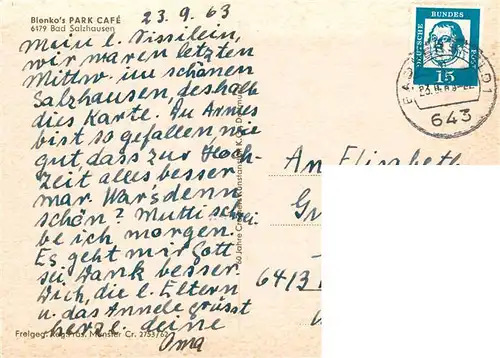 Blenko's PARK CAFÉ
6479 Bad Salzhausen
23.9.63
Mein l. Sissilein,
wir waren letzten
Mittw. im schönen
Salzhausen, deshalb
die Karte. Du Armes
bist so gefallen nur
gut, dass zur Hoch-
Zeit alles besser
war. War's denn
schön? Mutti schrei-
be ich morgen.
Es geht mir Gott
sei Dank besser
Dich, die l. Eltern
u. das Annele grüsst
herzl. deine
Oma
Freigeg. Reg. Präs. Münster Cr. 2753/62
60 Jahre Cramers Kunstanstalt K.G., Dortmund
DEUTSCHE BUNDESPOST
15
643
An Elisabeth
6413